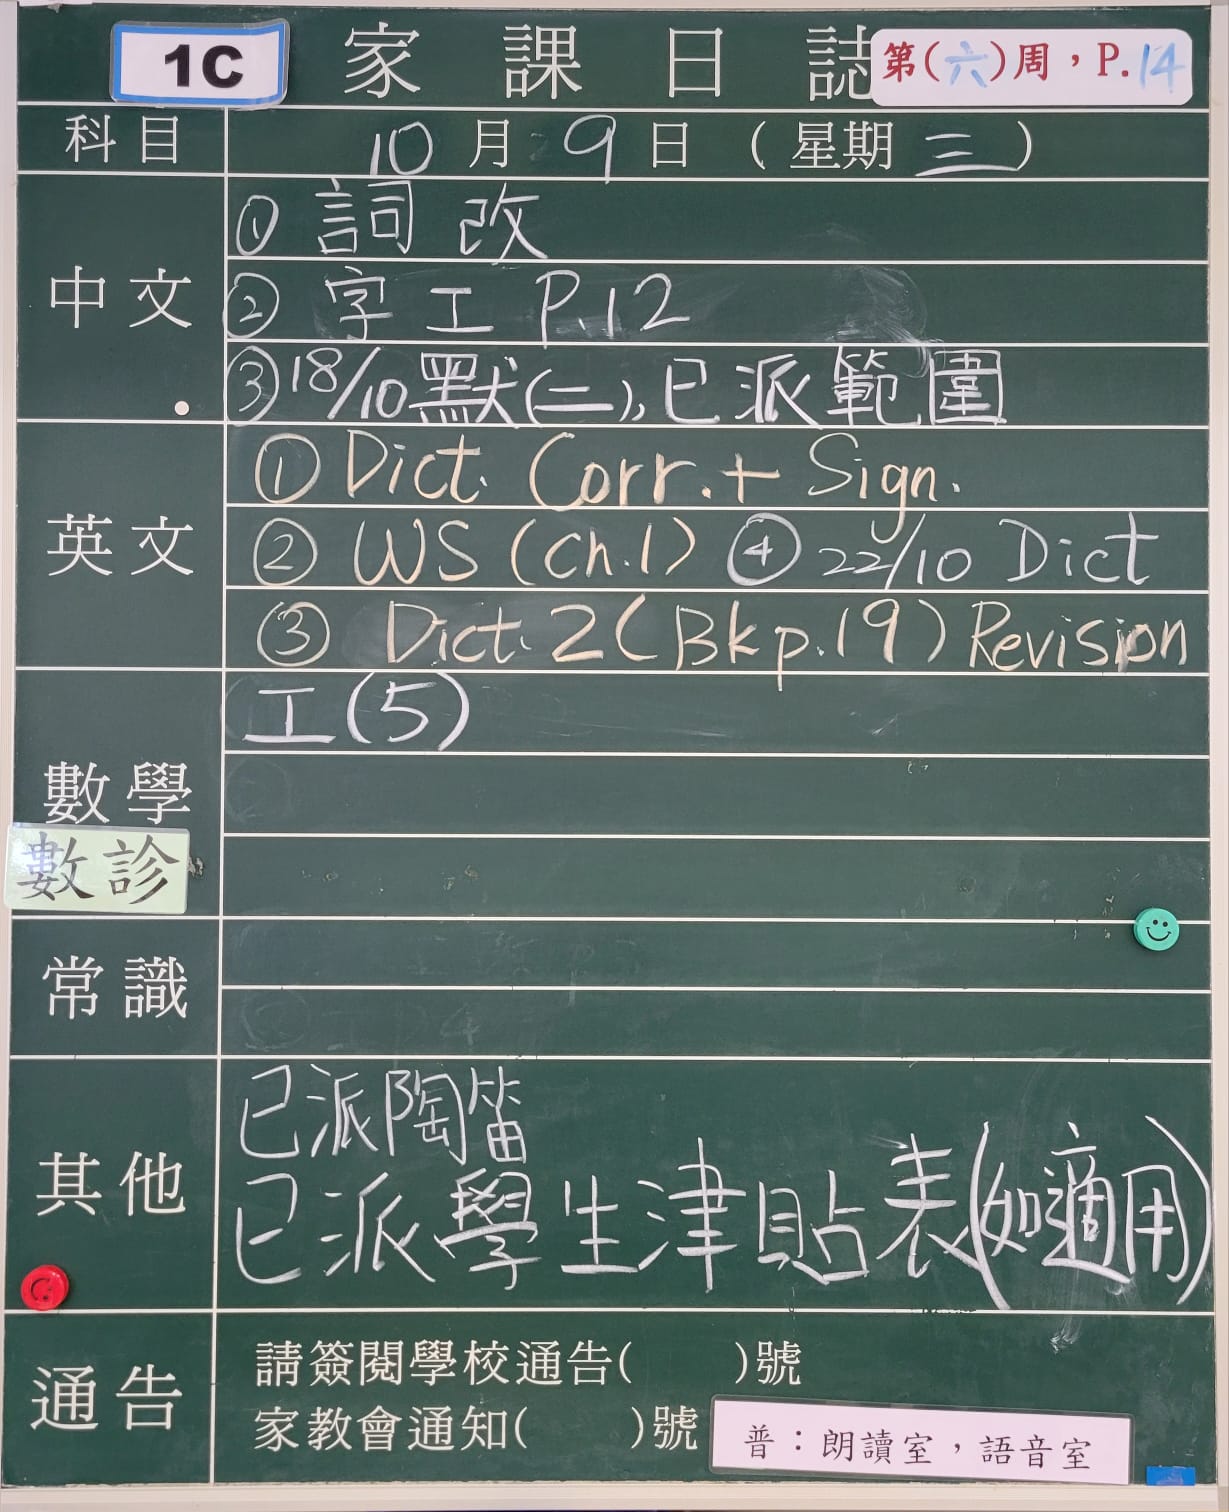 1C 家課日誌 第(六)周，P.14
科目 10月9日（星期三）
中文
① 詞改
② 字工 P.12
③ 18/10 默(二)，已派範圍
英文
① Dict. Corr. + Sign.
② WS (Ch.1) ④ 22/10 Dict
③ Dict. 2 (Bk p.19) Revision
數學
工(5)
數診
常識
其他
已派陶笛
已派學生津貼表(如適用)
通告
請簽閱學校通告( )號
家教會通知( )號
普：朗讀室，語音室